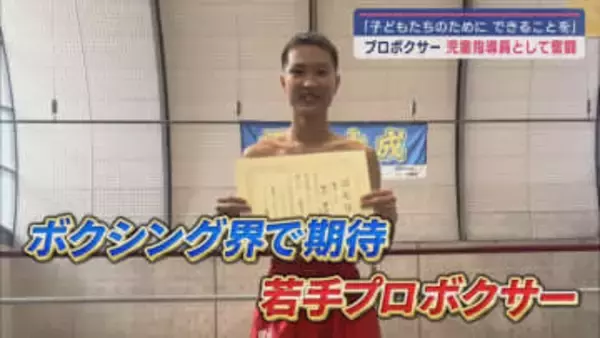 「子どもたちのために できることを」
プロボクサー 児童指導員として奮闘
ボクシング界で期待
若手プロボクサー